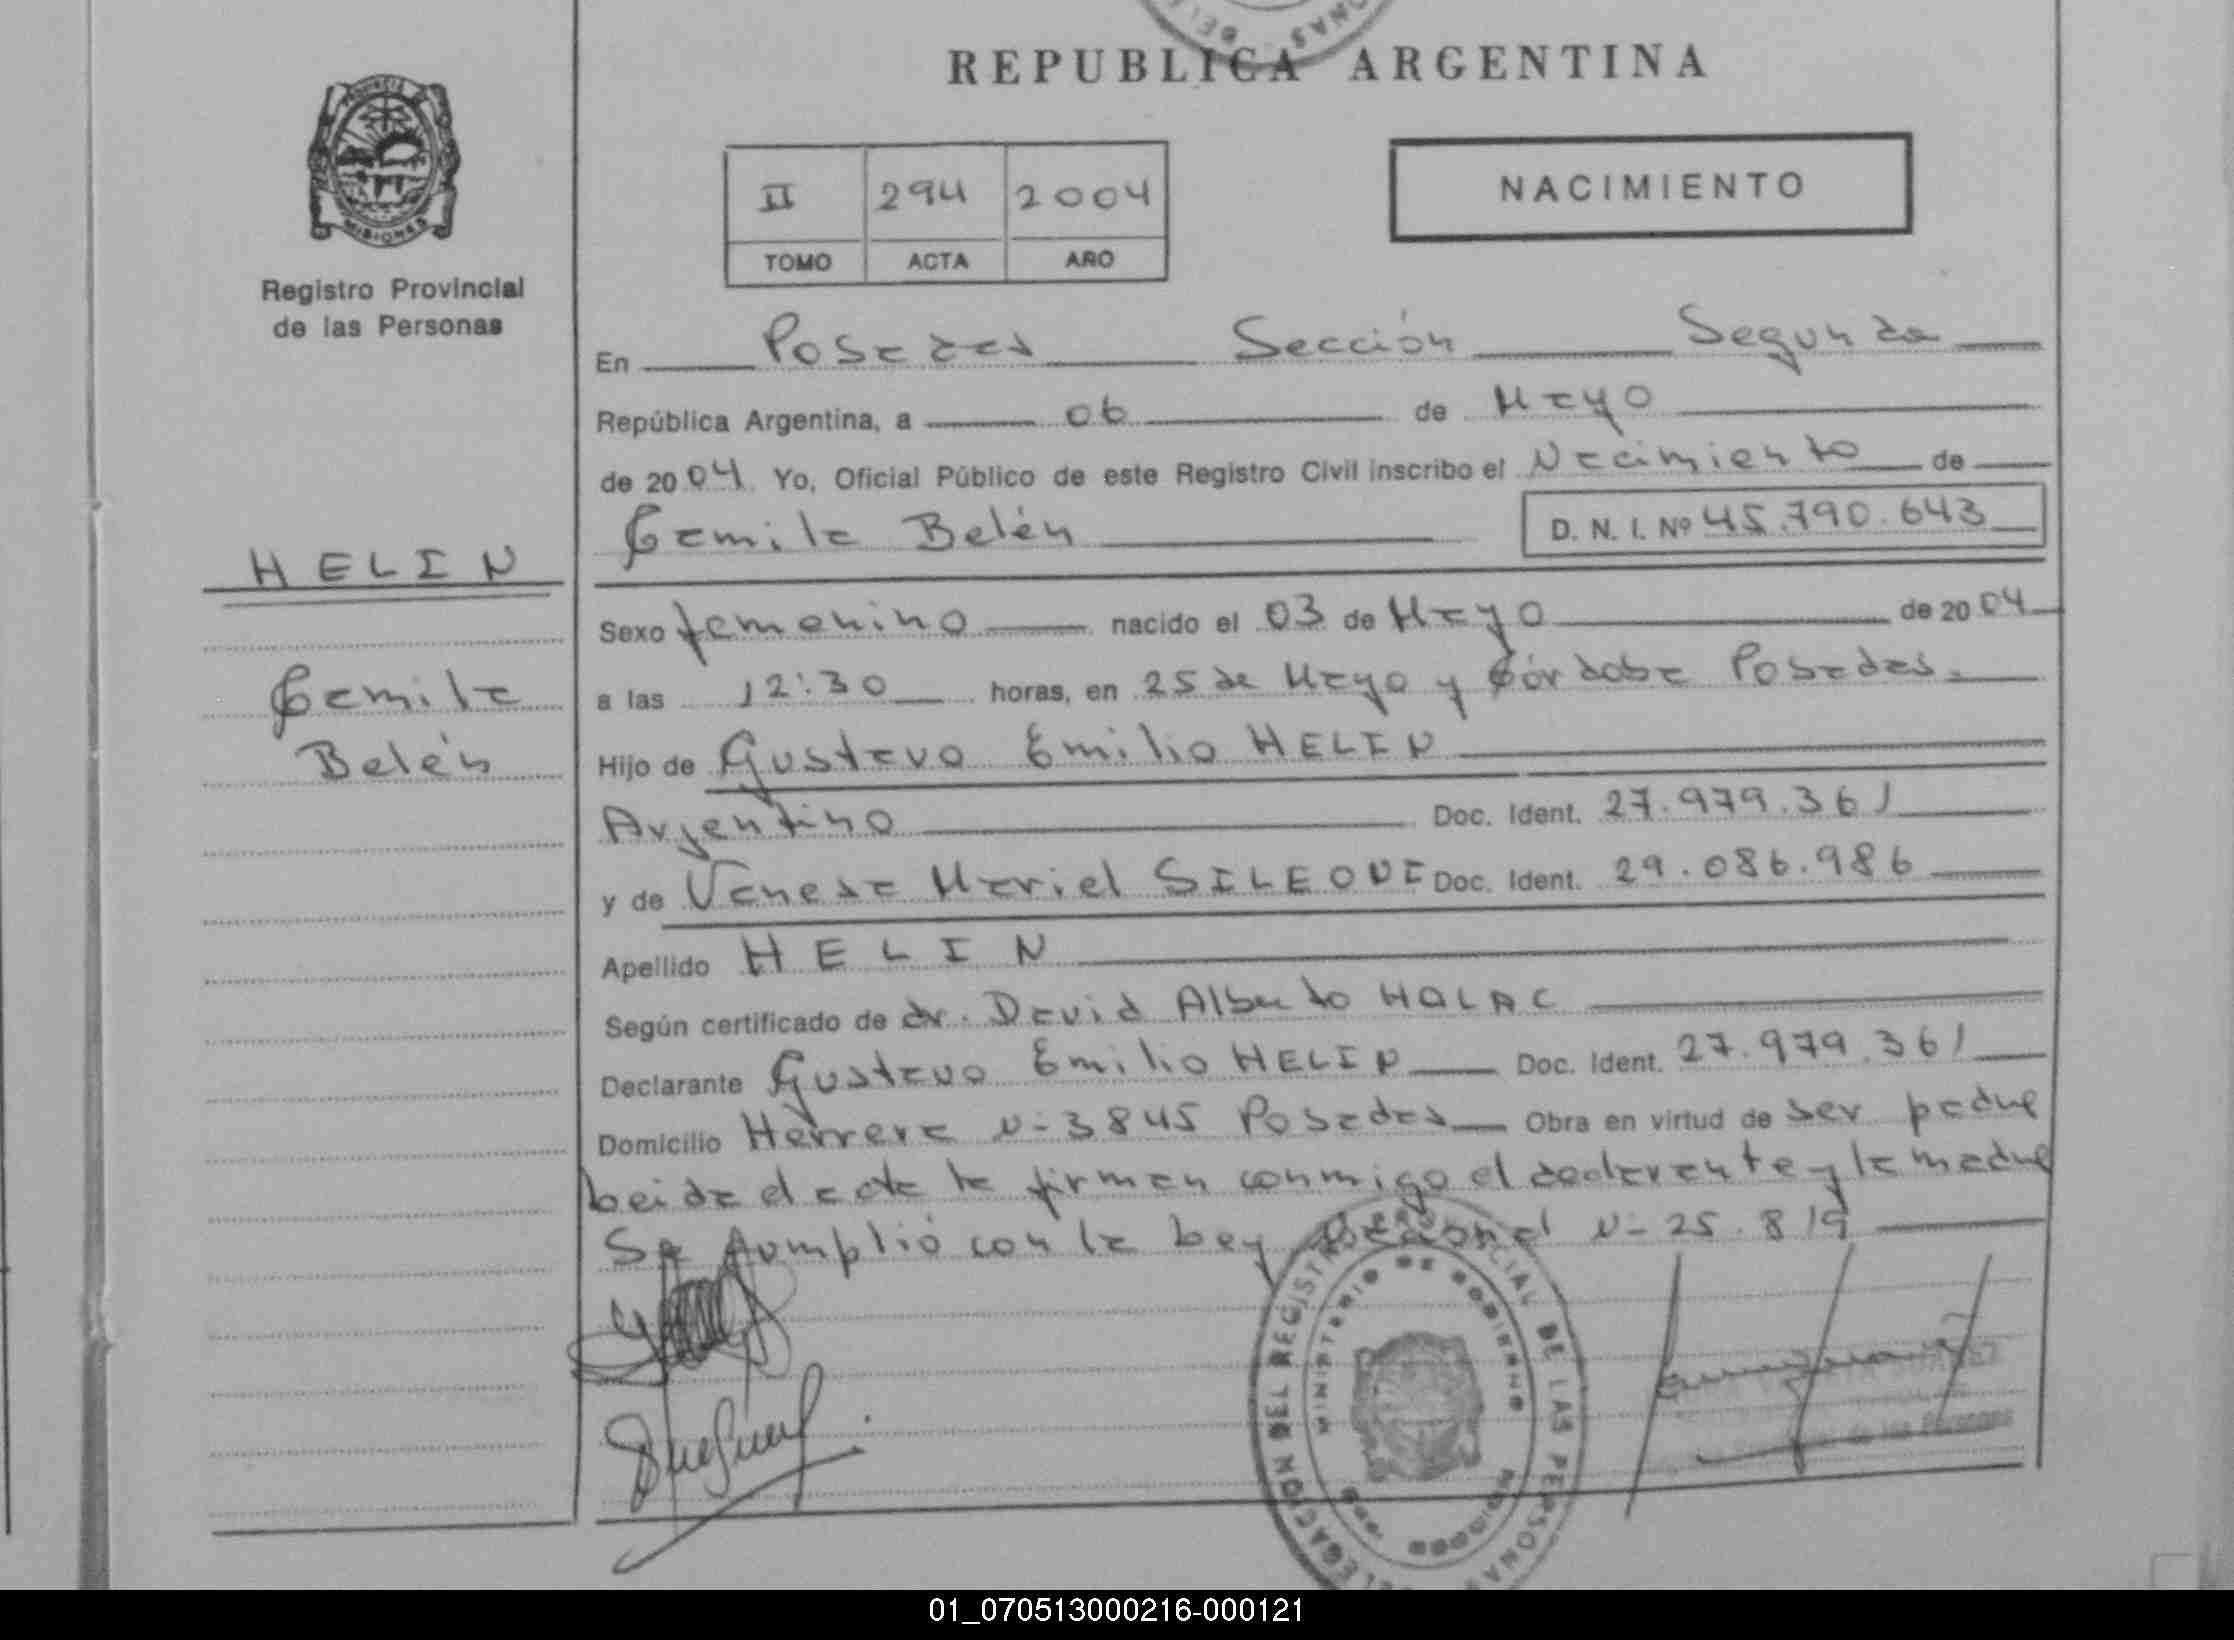 REPUBLICA ARGENTINA
PROVINCIA DE
MISIONES
Registro Provincial
de las Personas
II 294 2004
TOMO ACTA AÑO
NACIMIENTO
En Posadas Sección Segunda
República Argentina, a 06 de Mayo
de 2004 Yo, Oficial Público de este Registro Civil inscribo el Nacimiento de
Camila Belén D. N. I. Nº 45.790.643
HELIN
Camila
Belén
Sexo femenino nacido el 03 de Mayo de 2004
a las 12:30 horas, en 25 de Mayo y Córdoba Posadas.
Hijo de Gustavo Emilio HELIN
Argentino Doc. Ident. 27.979.361
y de Vanesa Mariel SILEONI Doc. Ident. 29.086.986
Apellido HELIN
Según certificado de dr. David Alberto HOLAC
Declarante Gustavo Emilio HELIN Doc. Ident. 27.979.361
Domicilio Herrera N- 3845 Posadas Obra en virtud de ser padre
Leida el acta la firman conmigo el declarante y la madre
Se cumplió con la Ley Nacional N- 25.819
DELEGACION DEL REGISTRO PROVINCIAL DE LAS PERSONAS
MINISTERIO DE GOBIERNO
de las Personas
01_070513000216-000121